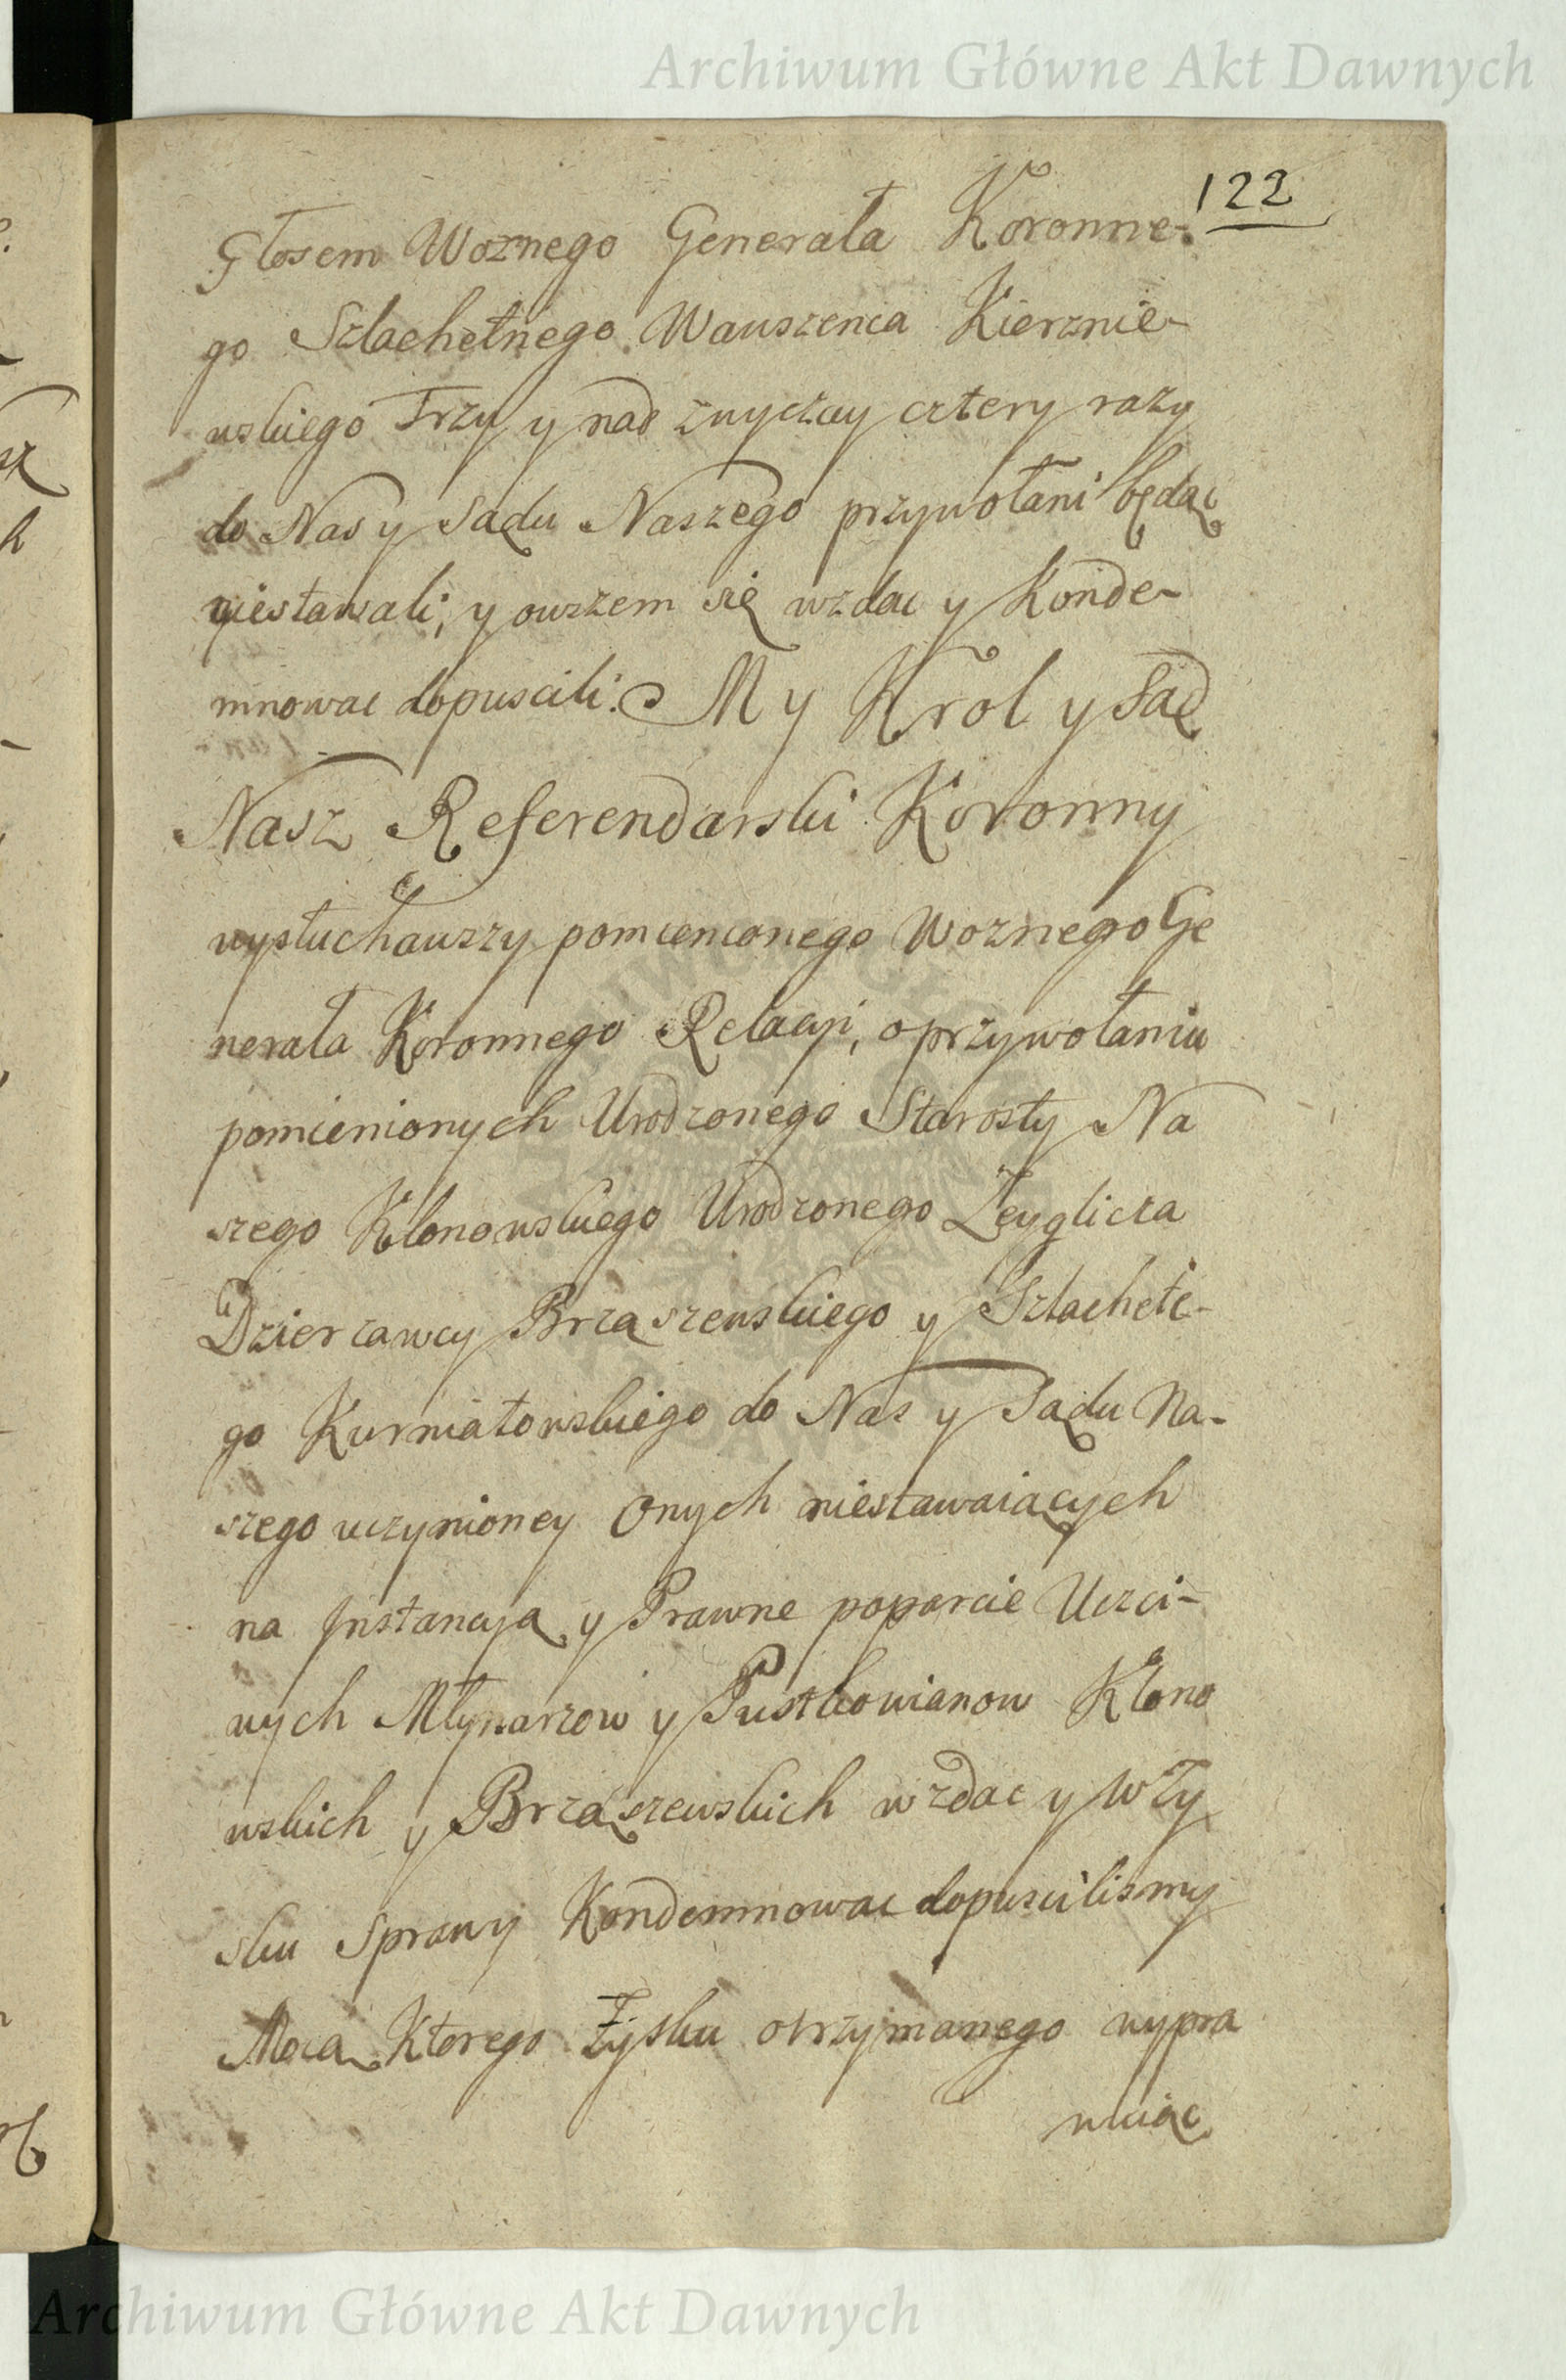 Archiwum Główne Akt Dawnych
122
Głosem Woznego Generała Koronne-
go Szlachetnego Wawrzenca Kierznie-
wskiego Trzy y nad zwyczay cztery razy
do Nas y Sądu Naszego przywołani będąc
niestawali, y owszem się wzdac y Konde-
mnowac dopuscili. My Krol y Sąd
Nasz Referendarski Koronny
wysłuchawszy pomienionego Woznego Ge
nerała Koronnego Relacyi, o przywołaniu
pomienionych Urodzonego Starosty Na
szego Klonowskiego Urodzonego Zeyglicza
Dzierzawcy Brzaszewskiego y Szlachetne-
go Kurniatowskiego do Nas y Sądu Na-
szego uczynioney Onych niestawaiących
na Instancyą y Prawne poparcie Uczci-
wych Młynarzow y Pustkowianow Kłono
wskich y Brząszewskich wzdac y w Zy
sku Sprawy Kondemnowac dopuscilismy
Mocą Ktorego Zysku otrzymanego wypra
wuiąc
Archiwum Główne Akt Dawnych